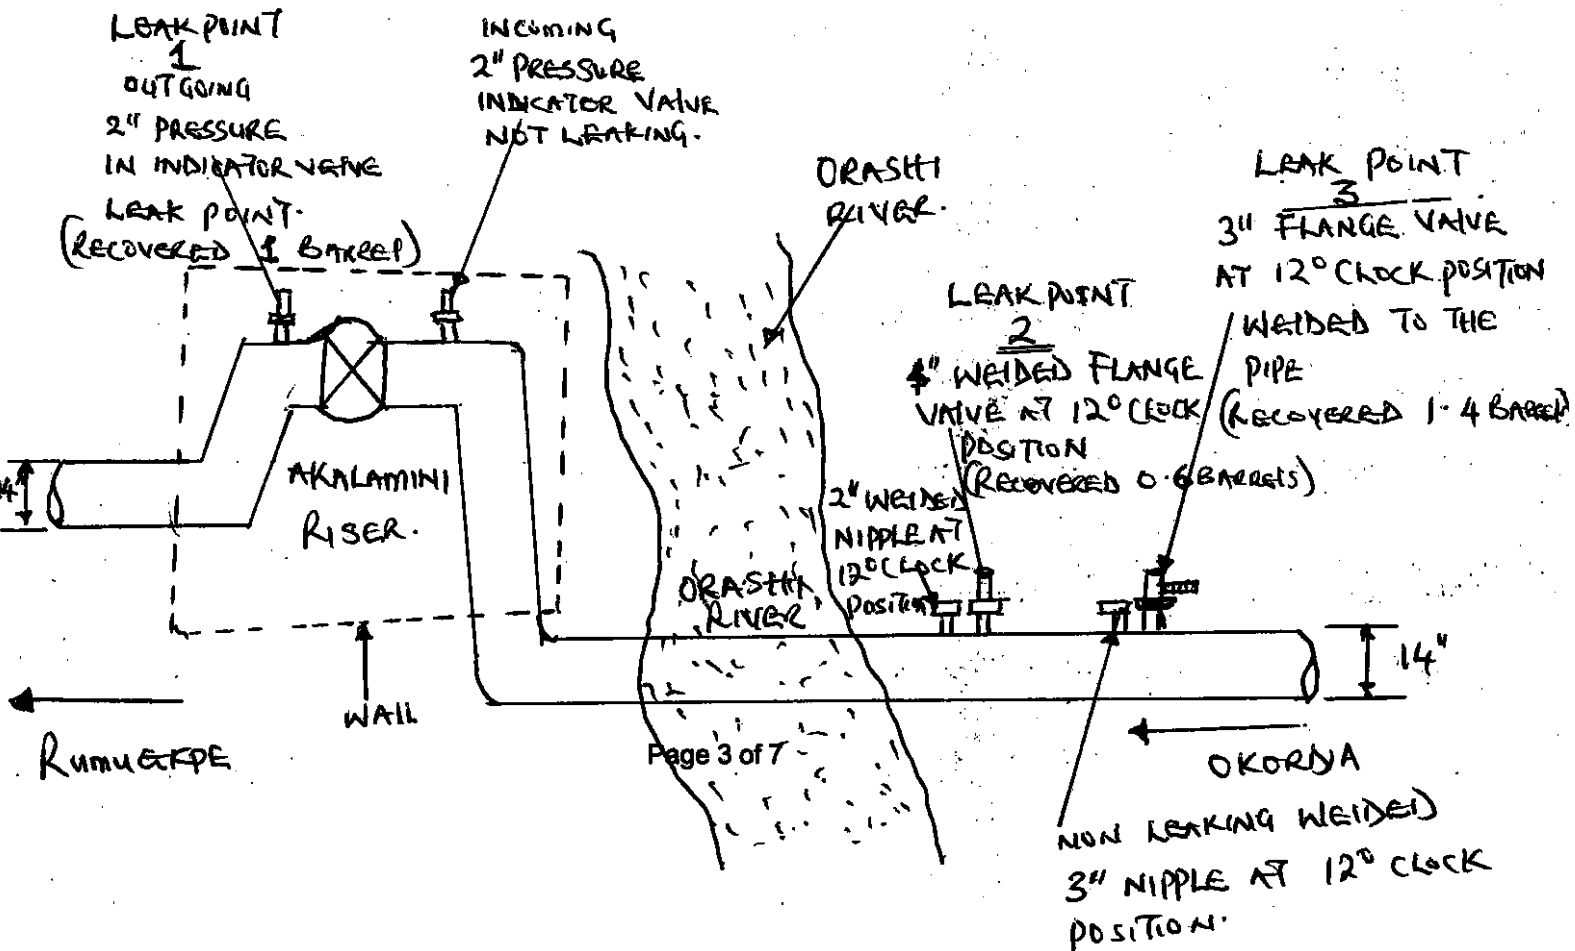 LEAK POINT
1
OUTGOING
2" PRESSURE
IN INDICATOR VALVE
LEAK POINT.
(RECOVERED 1 BARREL)
INCOMING
2" PRESSURE
INDICATOR VALVE
NOT LEAKING.
ORASHI
RIVER.
LEAK POINT
3
3" FLANGE VALVE
AT 12O CLOCK POSITION
WELDED TO THE
PIPE
(RECOVERED 1.4 BARREL)
LEAK POINT
2
WELDED FLANGE
VALVE AT 12O CLOCK
POSITION
(RECOVERED 0.6 BARRELS)
2" WELDED
NIPPLE AT
12O CLOCK
POSITION
AKALAMINI
RISER.
ORASHI
RIVER
14"
WALL
RUMUEKPE
Page 3 of 7
OKORDIA
NON LEAKING WELDED
3" NIPPLE AT 12O CLOCK
POSITION.